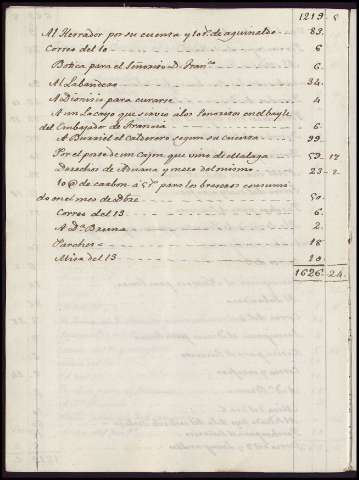 1219. 8
Al Herrador por su cuenta y 10 rs. de aguinaldo 83.
Correo del 10 6
Botica para el Señorito D. Franco. 6
Al Labandero 34.
A Dionisio para curarse 4
A un Lacayo que sirvio a los Señoritos en el bayle
del Embajador de Francia 6
A Burriel el Calderero segun su cuenta 99.
Por el porte de un Cajon que vino de Malaga 59. 17
Derechos de Aduana y mozo del mismo 23. 2
10 @ de carbon a 5 rs. para los braseros consumi
do en el mes de Dbre 50.
Correo del 13 6.
A Da. Bruna 2.
Parches 18
Misa del 13 10
1626. 24.